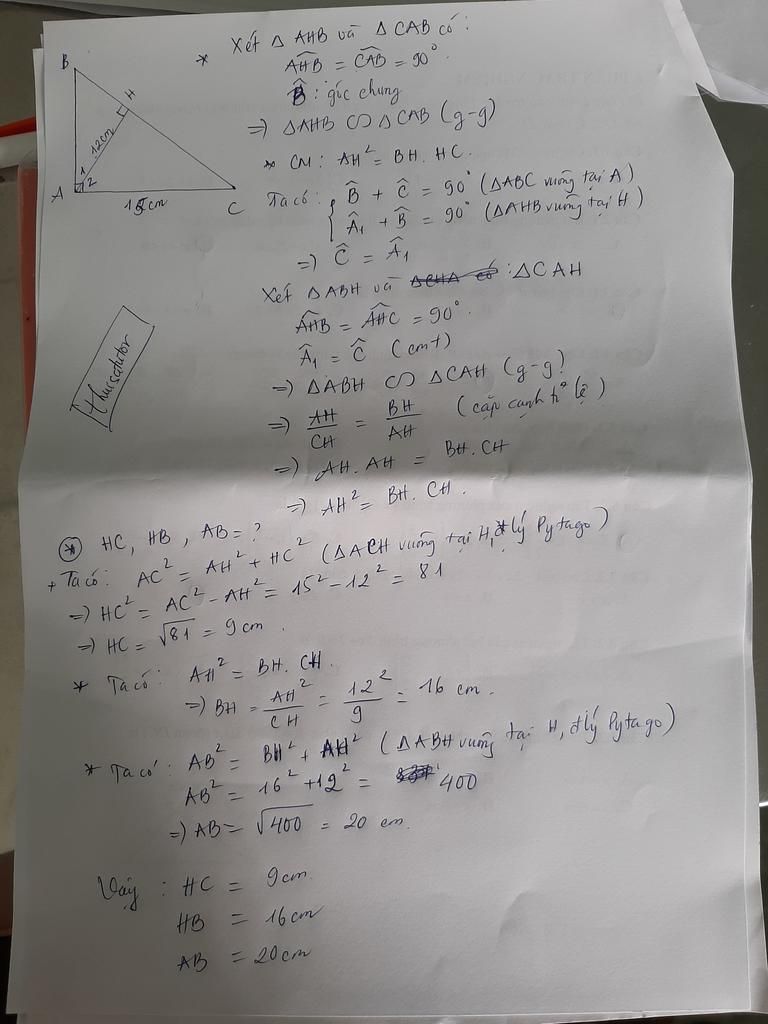 * Xét Δ AHB và Δ CAB có:
B
AĤB = CÂB = 90°.
H
B̂ : góc chung
12cm
=> ΔAHB ∽ ΔCAB (g-g)
* CM: AH² = BH. HC.
1
2
A
15cm
C
Ta có: { B̂ + Ĉ = 90° (ΔABC vuông tại A)
Â₁ + B̂ = 90° (ΔAHB vuông tại H)
=> Ĉ = Â₁
Xét ΔABH và ΔCHA có : ΔCAH
AĤB = AĤC = 90°.
Â₁ = Ĉ (cmt)
thuisatutor
=> ΔABH ∽ ΔCAH (g-g)
=> AH/CH = BH/AH (cặp cạnh tỉ lệ)
=> AH. AH = BH. CH
=> AH² = BH. CH.
* HC, HB, AB = ?
+ Ta có: AC² = AH² + HC² (ΔACH vuông tại H, đlý Pytago)
=> HC² = AC² - AH² = 15² - 12² = 81
=> HC = √81 = 9cm.
* Ta có: AH² = BH. CH.
=> BH = AH²/CH = 12²/9 = 16 cm.
* Ta có: AB² = BH² + AH² (ΔABH vuông tại H, đlý Pytago)
AB² = 16² + 12² = 400
=> AB = √400 = 20 cm.
Vậy : HC = 9cm.
HB = 16cm
AB = 20cm